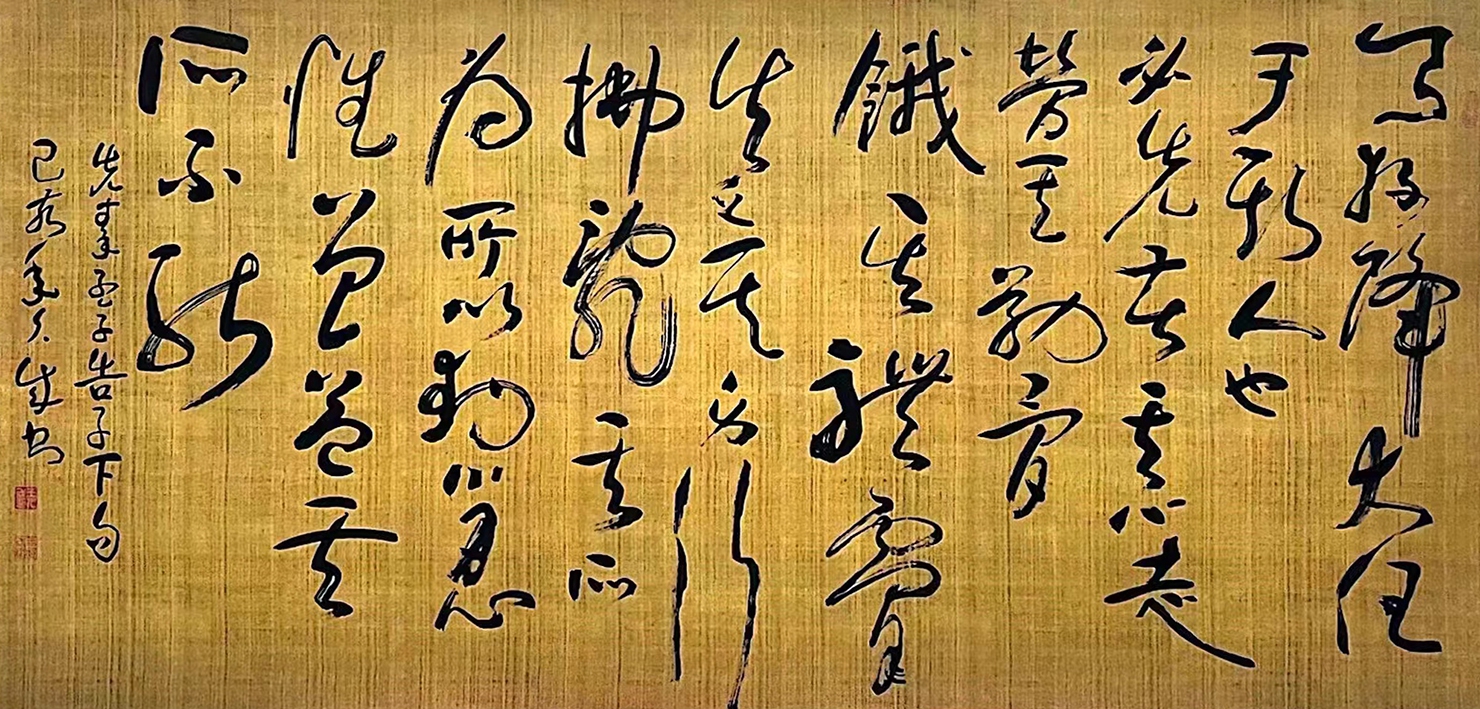 天將降大任
于斯人也
必先苦其心志
勞其筋骨
餓其體膚
空乏其身行
拂亂其所
為所以動心忍
性曾益其
所不能
先秦孟子告子下句
己亥年 成书